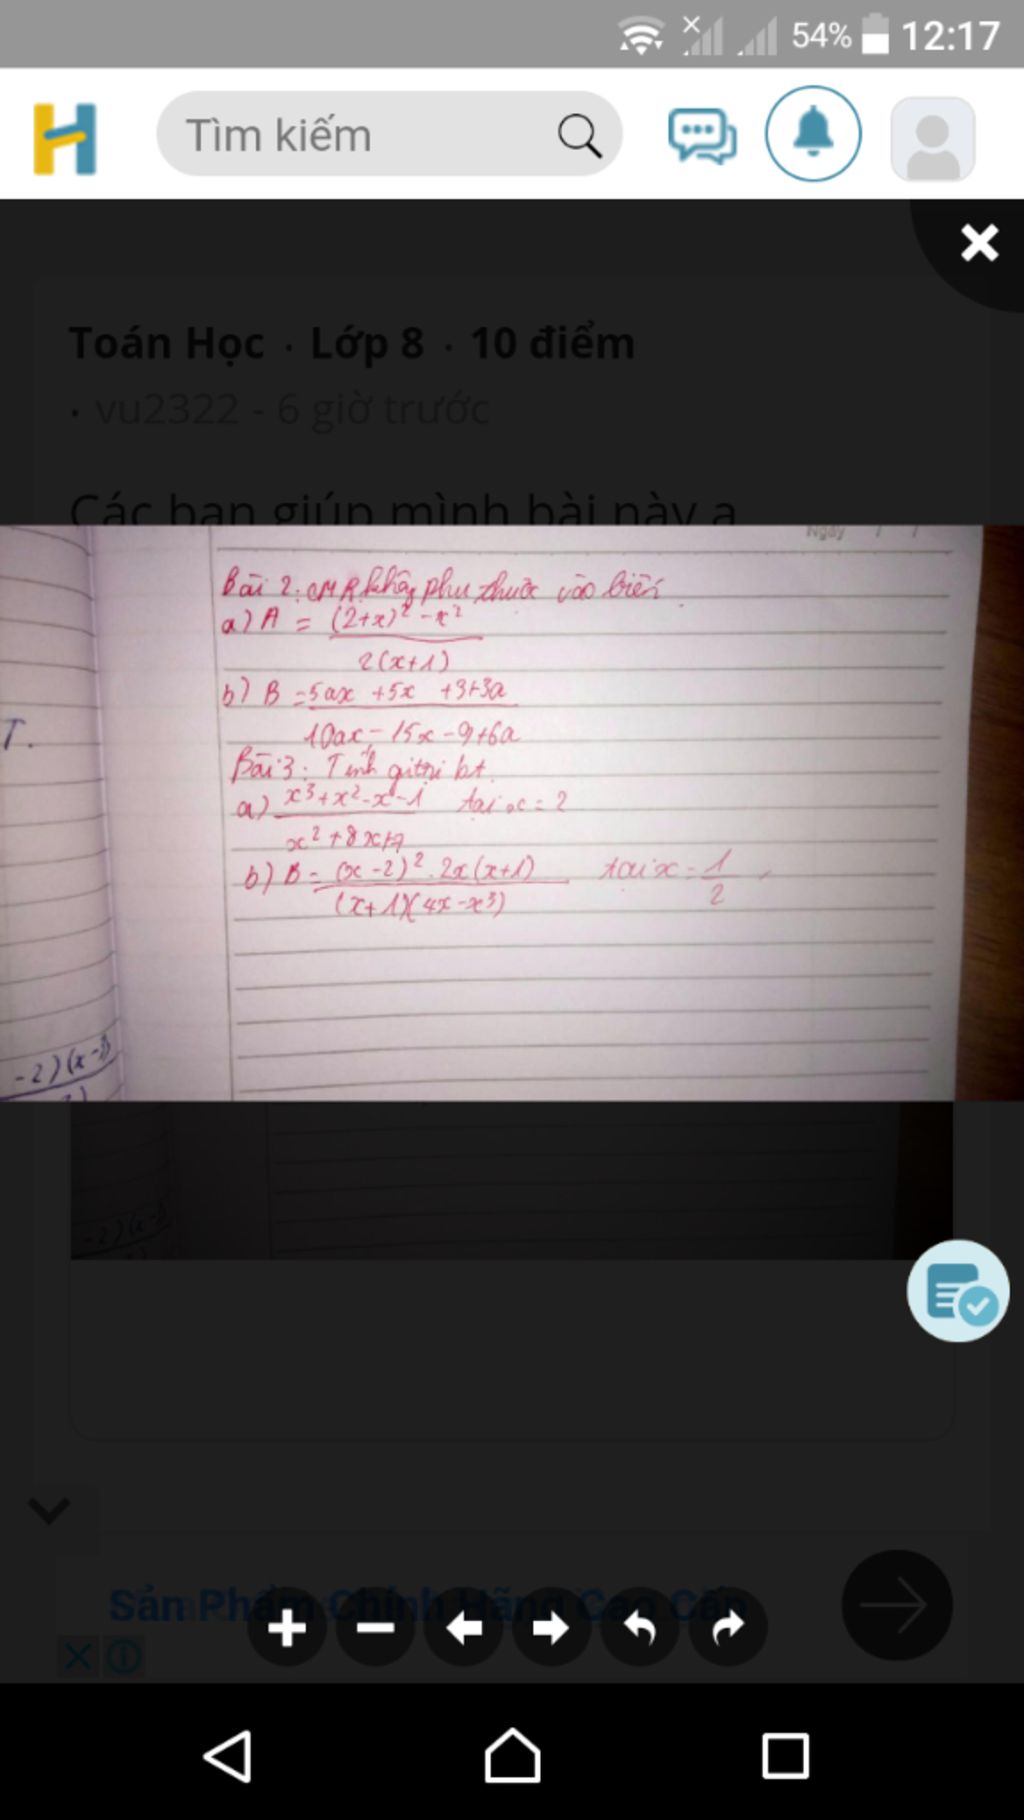 54% 12:17
Tìm kiếm
Toán Học · Lớp 8 · 10 điểm
· vu2322 - 6 giờ trước
Các bạn giúp mình bài này ạ
Ngày / /
Bài 2: CMR không phụ thuộc vào biến.
a) A = (2+x)² - x²
2(x+1)
b) B = 5ax + 5x + 3+3a
10ax - 15x - 9+6a
T.
Bài 3: Tính giá trị bt.
a) x³+x²-x-1 tại x = 2
x² + 8x+7
b) B = (x-2)².2x(x+1) tại x = 1
(x+1)(4x-x³) 2
-2)(x-3)
-2)(x-3)
Sản Phẩm Chính Hãng Cao Cấp